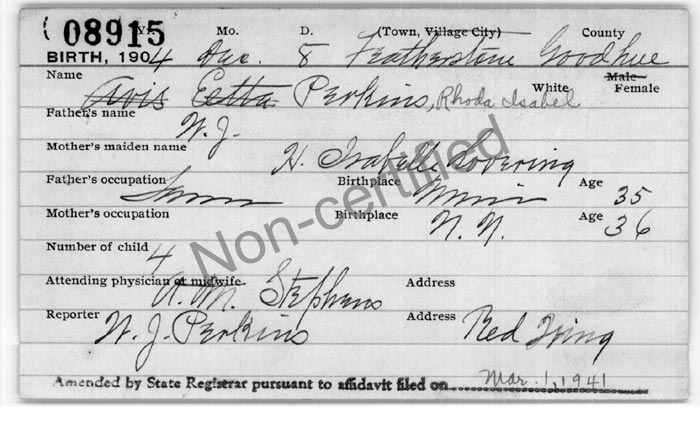 08915 Yr. Mo. D. (Town, Village City) County
BIRTH, 1904 Dec. 8 Featherstone Goodhue
Name Avis Eetta Perkins, Rhoda Isabel White Male Female
Father's name W. J.
Mother's maiden name H. Isabelle Lovering
Father's occupation Birthplace Minn Age 35
Mother's occupation Birthplace Age 36
Number of child 4
Attending physician or midwife A. M. Stephens Address
Reporter W. J. Perkins Address Red Wing
Amended by State Registrar pursuant to affidavit filed on Mar. 1, 1941
Non-certified